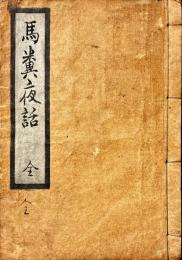 馬糞夜話 全